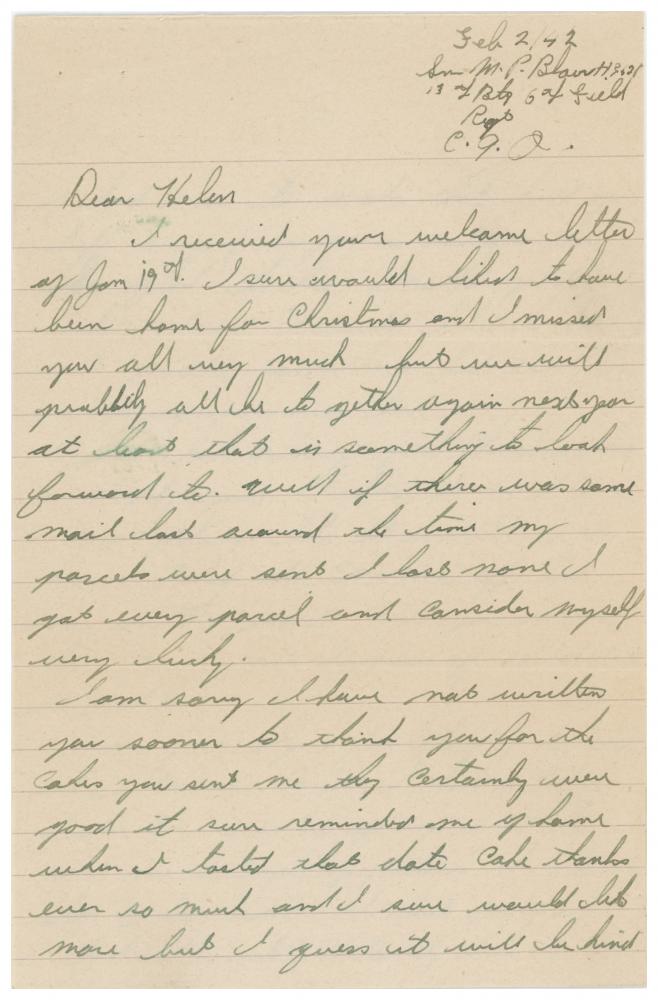 Feb 2/42
Gnr M. P. Blair H
13th Bty 6th Field
Regt
C. A. O.
Dear Helen
I received your welcome letter
of Jan 19th. I sure would liked to have
been home for Christmas and I missed
you all very much but we will
probbily all be to gether again next year
at least that is something to look
forward to. Well if there was some
mail lost around the time my
parcels were sent I lost none I
got every parcel and consider myself
very lucky.
I am sorry I have not written
you sooner to thank you for the
cakes you sent me they certainly were
good it sure reminded me of home
when I tasted that date cake thanks
ever so much and I sure would like
more but I guess it will be kind